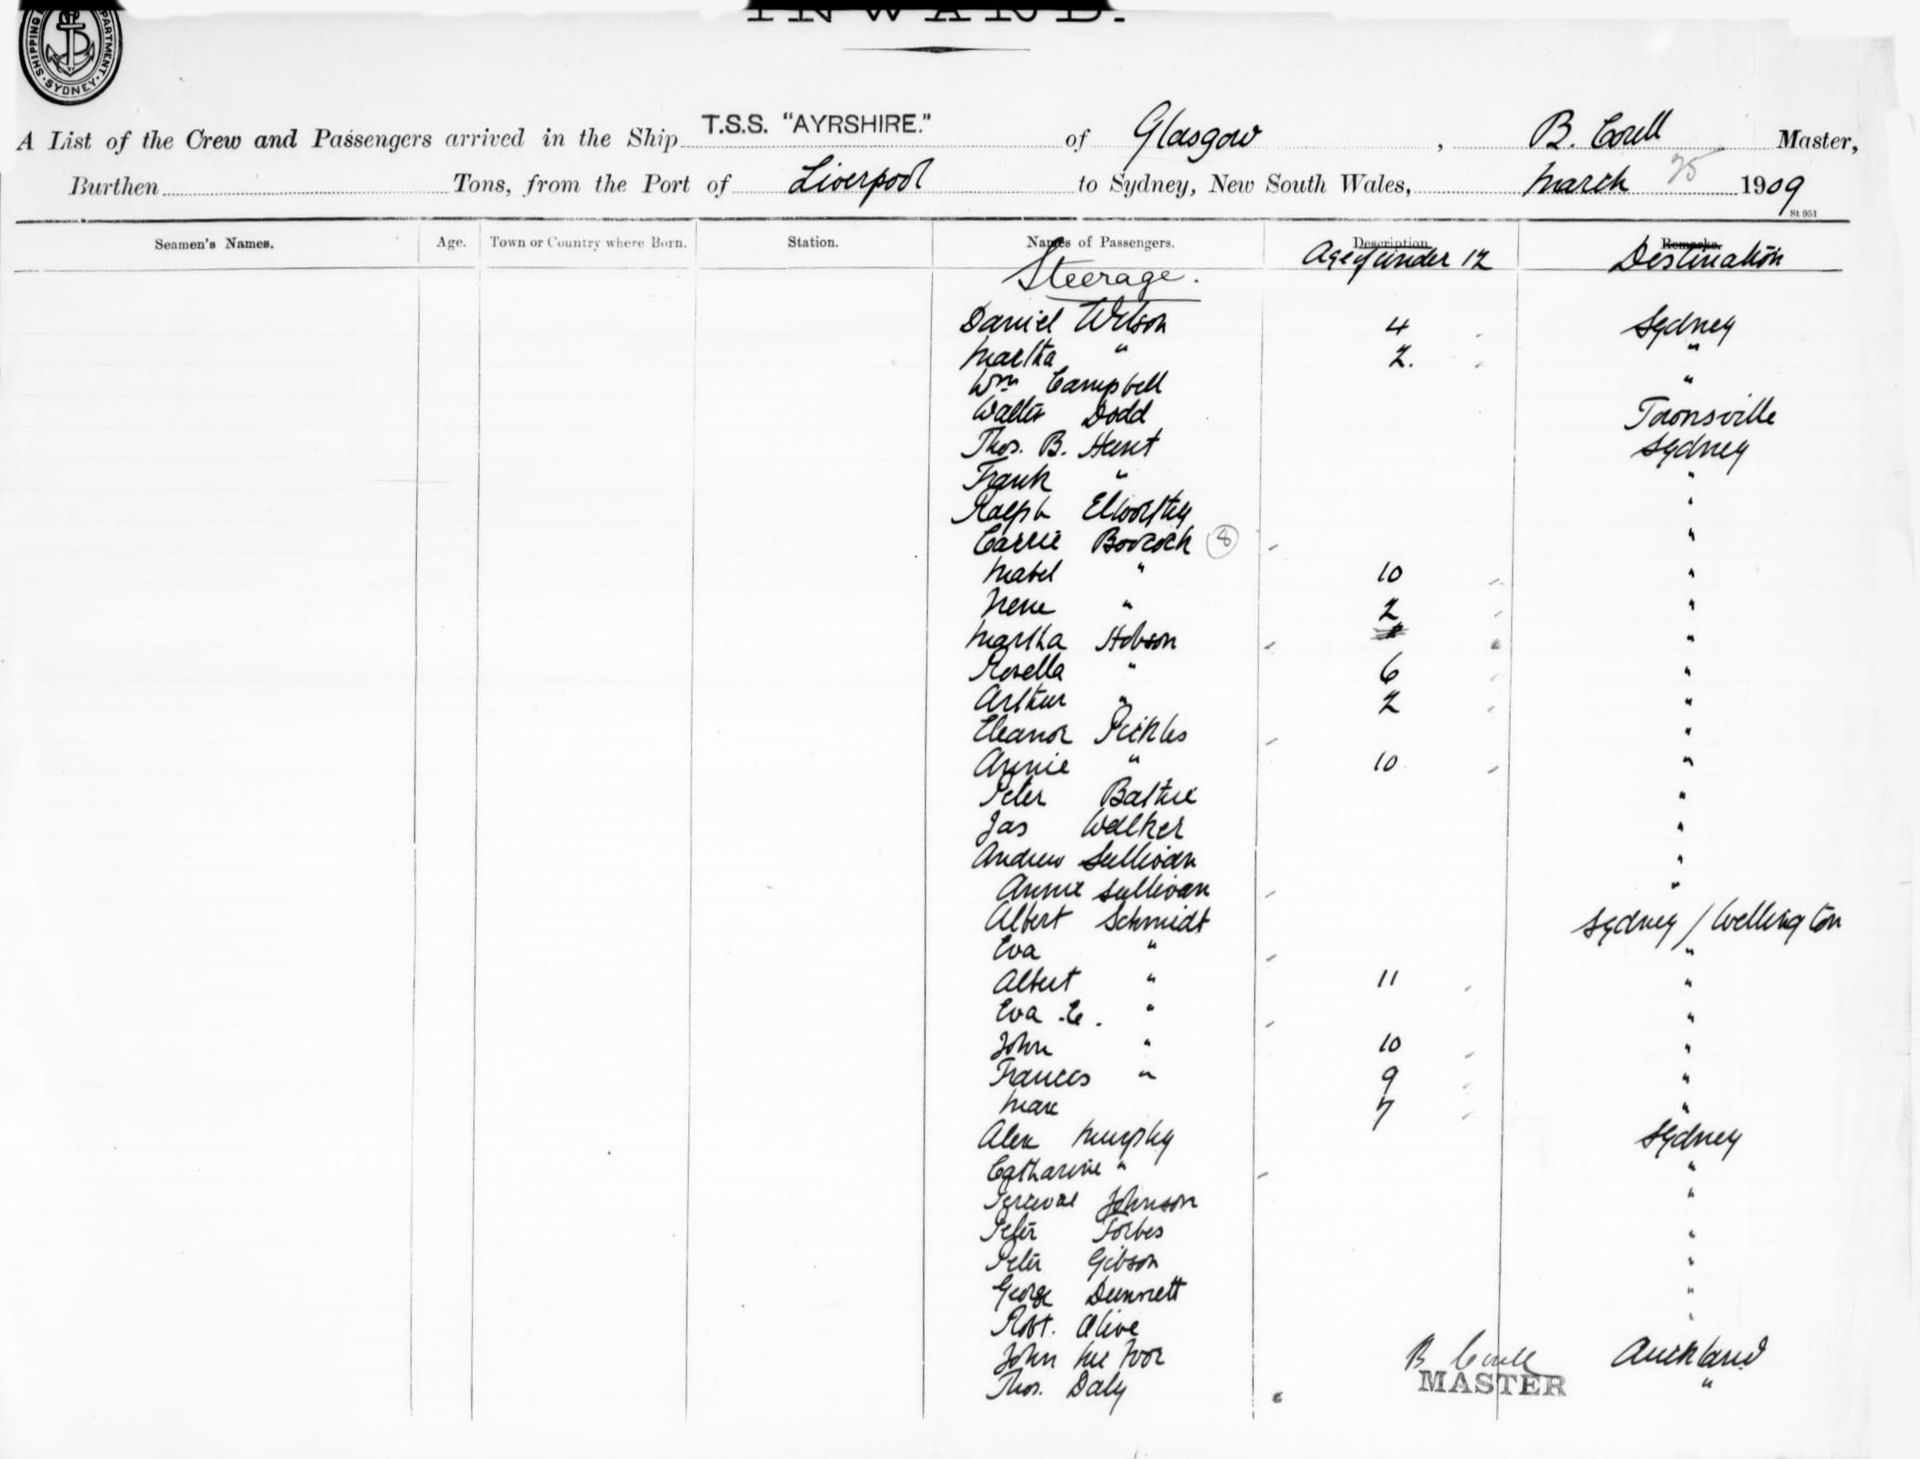 INWARD.
SHIPPING DEPARTMENT SYDNEY
A List of the Crew and Passengers arrived in the Ship T.S.S. "AYRSHIRE." of Glasgow, B. Coull Master,
Burthen Tons, from the Port of Liverpool to Sydney, New South Wales, March 25 1909
St 951
Seamen's Names. Age. Town or Country where Born. Station. Names of Passengers. Description Remarks.
Steerage. Age if under 12 Destination
Daniel Wilson 4 Sydney
Martha " 2. "
Wm Campbell "
Walter Dodd Townsville
Thos. B. Hunt Sydney
Frank " "
Ralph Elworthy "
Carrie Boocock 8 "
Mabel " 10 "
Irene " 2 "
Martha Hobson "
Rosella " 6 "
Arthur " 2 "
Eleanor Pickles "
Annie " 10 "
Peter "
Jas Walker "
Andrew Sullivan "
Annie Sullivan "
Albert Schmidt Sydney / Wellington
Eva " "
Albert " 11 "
Eva E. " "
John " 10 "
Frances " 9 "
Max 7 "
Alex Murphy Sydney
Catharine " "
Percival Johnson "
Peter Forbes "
Peter Gibson "
George Dunnett "
Robt. Olive "
John McIvor B Coull Auckland
Thos. Daly MASTER "